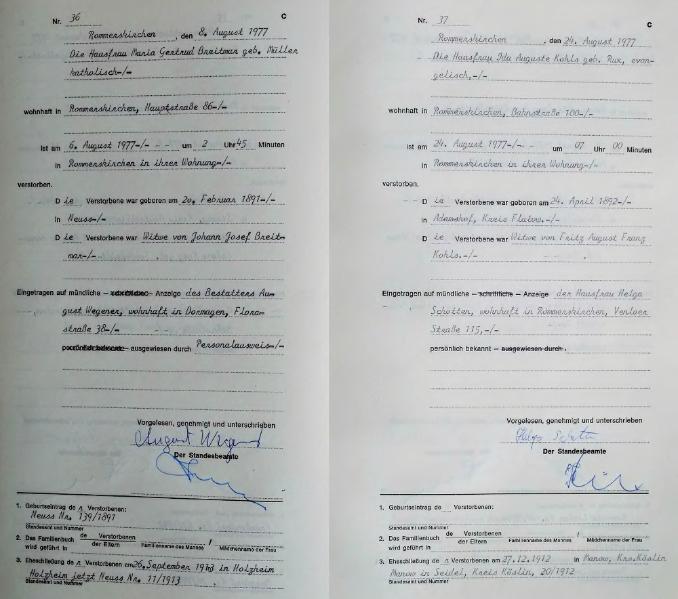 Nr. 36
C
Rommerskirchen, den 8. August 1977
Die Hausfrau Maria Gertrud Breitmar geb. Müller
katholisch-/-
wohnhaft in Rommerskirchen, Hauptstraße 86-/-
ist am 6. August 1977-/- - - um 2 Uhr 45 Minuten
in Rommerskirchen in ihrer Wohnung-/-
verstorben.
D ie Verstorbene war geboren am 20. Februar 1891-/-
in Neuss-/-
D ie Verstorbene war Witwe von Johann Josef Breit-
mar-/-
Eingetragen auf mündliche – schriftliche – Anzeige des Bestatters Au-
gust Wegener, wohnhaft in Dormagen, Flora-
straße 38-/-
persönlich bekannt – ausgewiesen durch Personalausweis-/-
Vorgelesen, genehmigt und unterschrieben
August
Der Standesbeamte
1. Geburtseintrag de r Verstorbenen:
Neuss Nr. 139/1891
Standesamt und Nummer
2. Das Familienbuch de Verstorbenen /
der Eltern
Familienname des Mannes
Mädchenname der Frau
wird geführt in
3. Eheschließung de r Verstorbenen am 26. September 1913 in Holzheim
Holzheim jetzt Neuss Nr. 11/1913
Standesamt und Nummer
Nr. 37
C
Rommerskirchen, den 24. August 1977
Die Hausfrau Ida Auguste Kohls geb. Rux, evan-
gelisch,-/-
wohnhaft in Rommerskirchen, Bahnstraße 100-/-
ist am 24. August 1977-/- - - um 07 Uhr 00 Minuten
in Rommerskirchen in ihrer Wohnung-/-
verstorben.
D ie Verstorbene war geboren am 24. April 1892-/-
in Adamshof, Kreis Flatow.-/-
D ie Verstorbene war Witwe von Fritz August Franz
Kohls.-/-
Eingetragen auf mündliche – schriftliche – Anzeige der Hausfrau Helga
Schotten, wohnhaft in Rommerskirchen, Venloer
Straße 115,-/-
persönlich bekannt – ausgewiesen durch.
Vorgelesen, genehmigt und unterschrieben
Helga
Der Standesbeamte
1. Geburtseintrag de Verstorbenen:
Standesamt und Nummer
2. Das Familienbuch de Verstorbenen /
der Eltern
Familienname des Mannes
Mädchenname der Frau
wird geführt in
3. Eheschließung de r Verstorbenen am 27.12.1912 in Manow, Krs. Köslin
Manow in Seidel, Kreis Köslin, 20/1912
Standesamt und Nummer